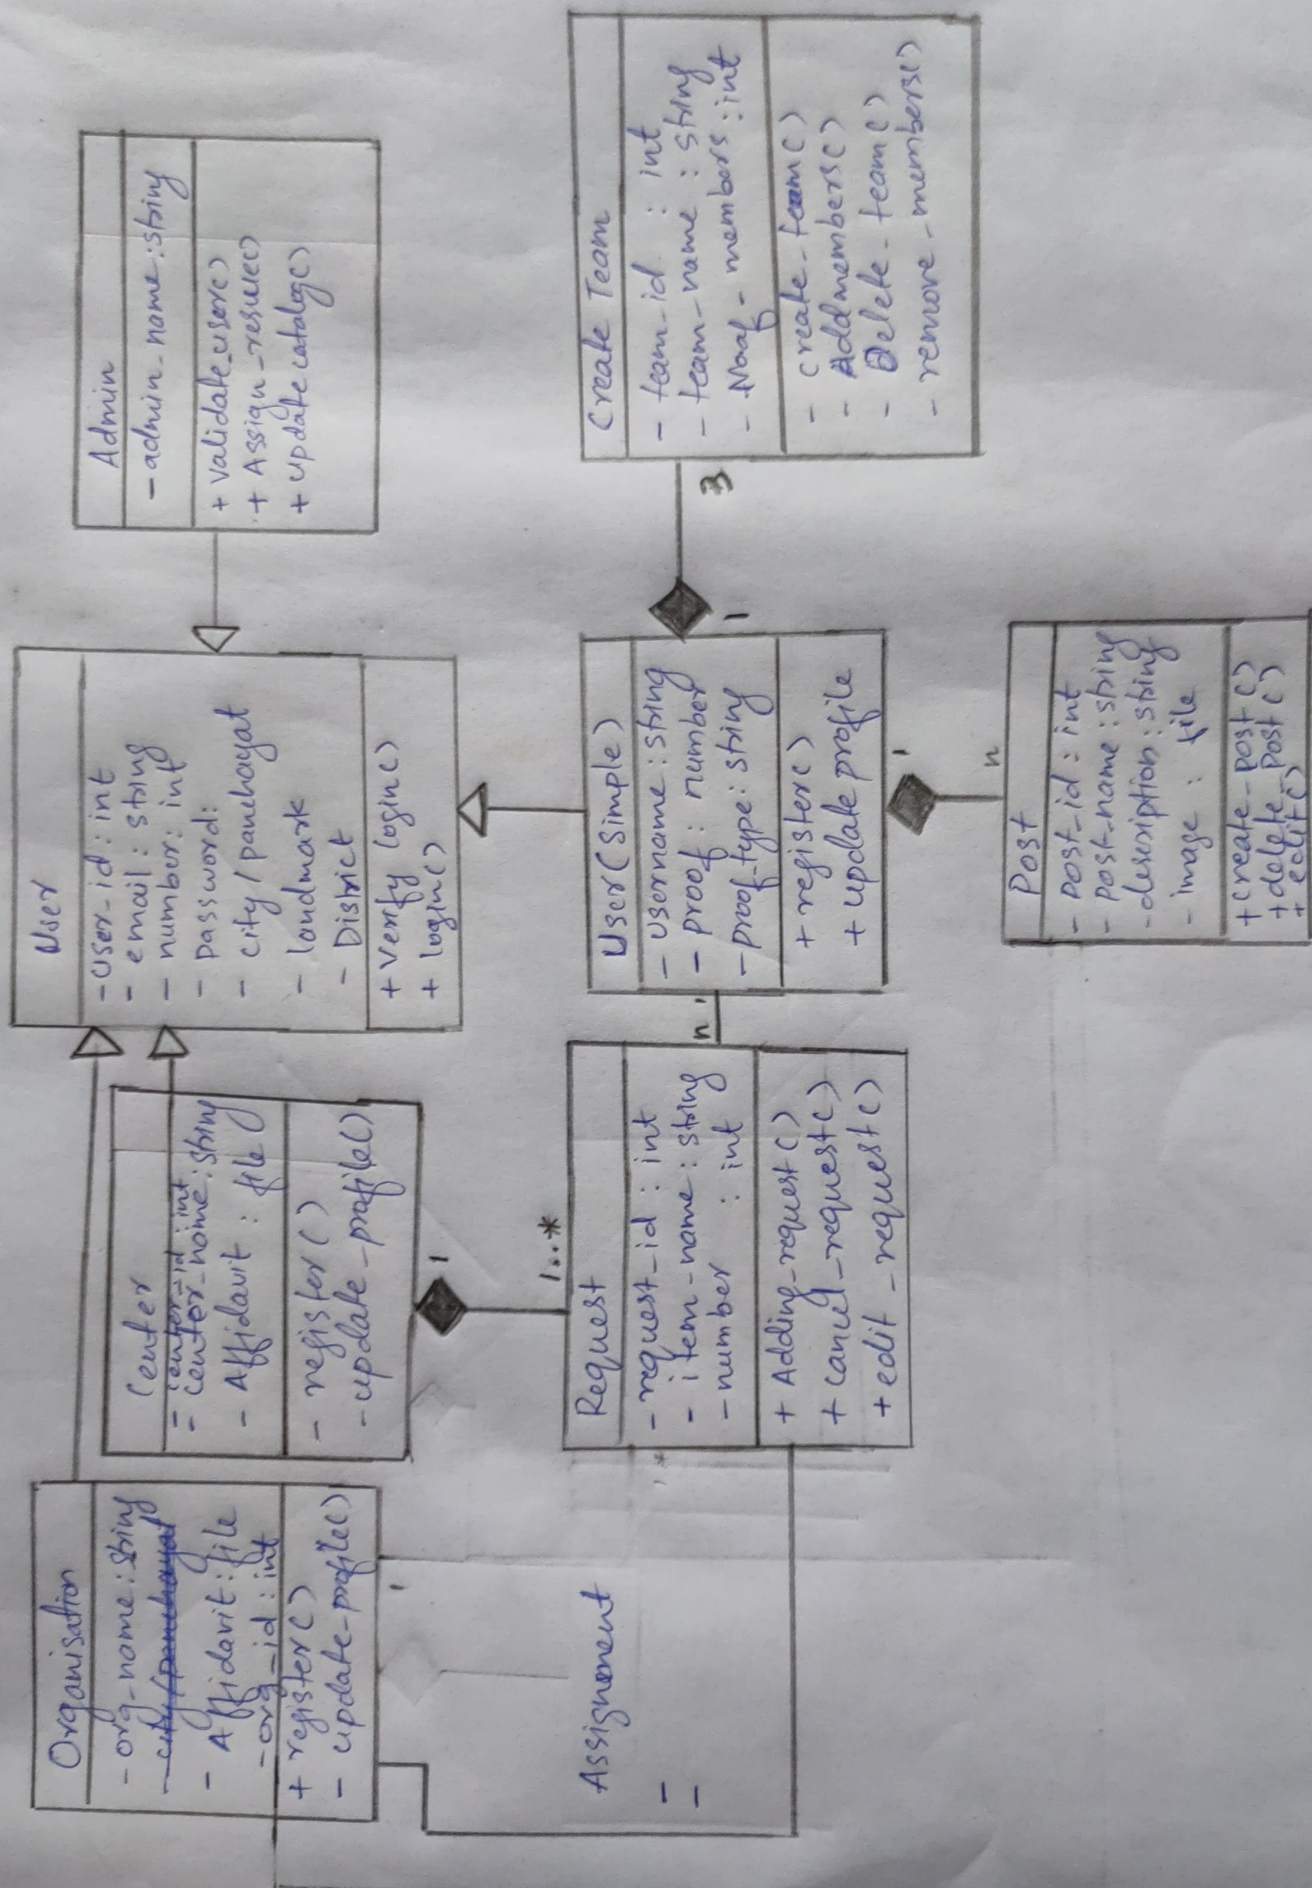 Organisation
- org-name:string
- city/panchayat
- Affidavit:file
- org-id:int
+ register()
- update-profile()
Center
- center-id:int
- center-name:string
- Affidavit : file
- register()
- update-profile()
User
- User-id:int
- email:string
- number:int
- password:
- city/panchayat
- landmark
- District
+ verify login()
+ login()
Admin
- admin-name:string
+ validate_user()
+ Assign-rescue()
+ update catalog()
1
1
1..*
Request
- request-id:int
- item-name:string
- number : int
+ Adding-request()
+ cancel-request()
+ edit-request()
n
1
User(Simple)
- username:string
- proof: number
- proof-type:string
+ register()
+ update profile
1
3
Create Team
- team-id : int
- team-name : string
- Noof-members:int
- create-team()
- Addmembers()
- Delete-team()
- remove-members()
1
n
Post
- post-id : int
- post-name:string
- description:string
- image : file
+ create-post()
+ delete-Post()
+ edit()
Assignment
-
-